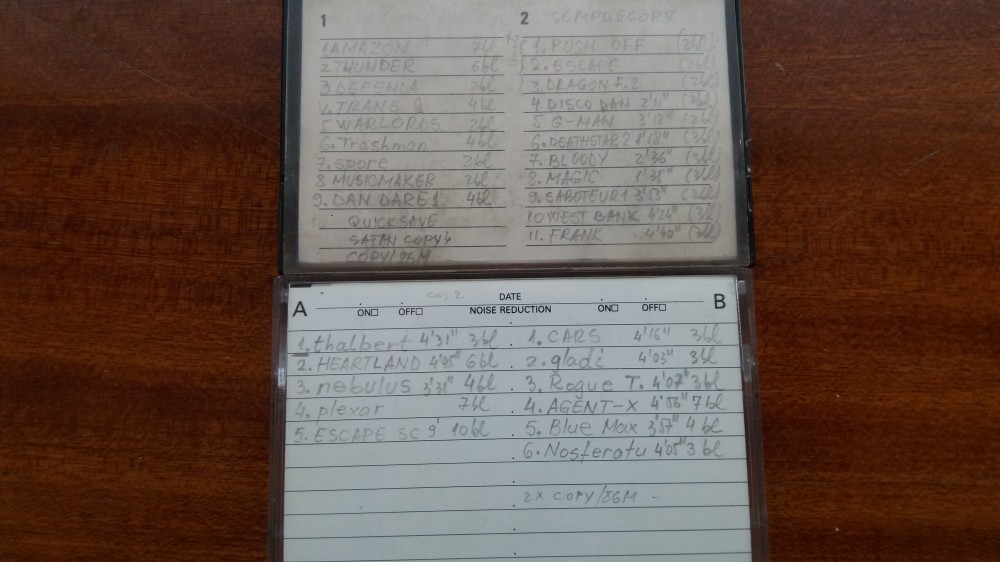 1
1 AMAZON 7bl
2 THUNDER 6bl
3 DEFENDA 2bl
4. TRANS 4bl
5 WARLORDS 2bl
6. Trashman 4bl
7. spore 2bl
8 MUSICMAKER 2bl
9. DAN DARE 1 4bl
QUICKSAVE
SATAN COPY 4
COPY/86M
2
1. PUSH OFF (2bl)
2. ESCAPE (2bl)
3. DRAGON F. 2 (2bl)
4 DISCO DAN 2'11" (2bl)
5 G-MAN 3'12" (2bl)
6. DEATHSTAR 2 1'18" (3bl)
7. BLOODY - 2'36" (3bl)
8. MAGIC 1'38" (3bl)
9. SABOTEUR 1 3'53" (2bl)
10 WEST BANK 4'24" (3bl)
11. FRANK 4'40" (3bl)
A DATE B
ON☐ OFF☐ NOISE REDUCTION ON☐ OFF☐
1. thalbert 4'31" 3bl
2. HEARTLAND 4'45" 6bl
3. nebulus 3'31" 4bl
4. plexar 7bl
5. ESCAPE SC 9' 10bl
1. CARS 4'16" 3bl
2. gladi 4'03" 3bl
3. Rogue T. 4'07" 3bl
4. AGENT-X 4'56" 7bl
5. Blue Max 3'57" 4bl
6. Nosferatu 4'05" 3bl
2X COPY/86M -